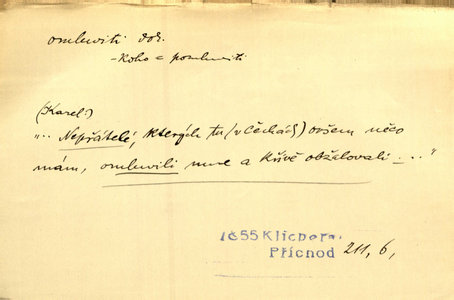 omluviti dok.
- koho = pomluviti
(Karel:)
".. Nepřátelé, kterých tu (v Čechách) ovšem něco
mám, omluvili mne a křivě obžalovali ... "
1c55 Klicpera:
Příchod 211, 6,